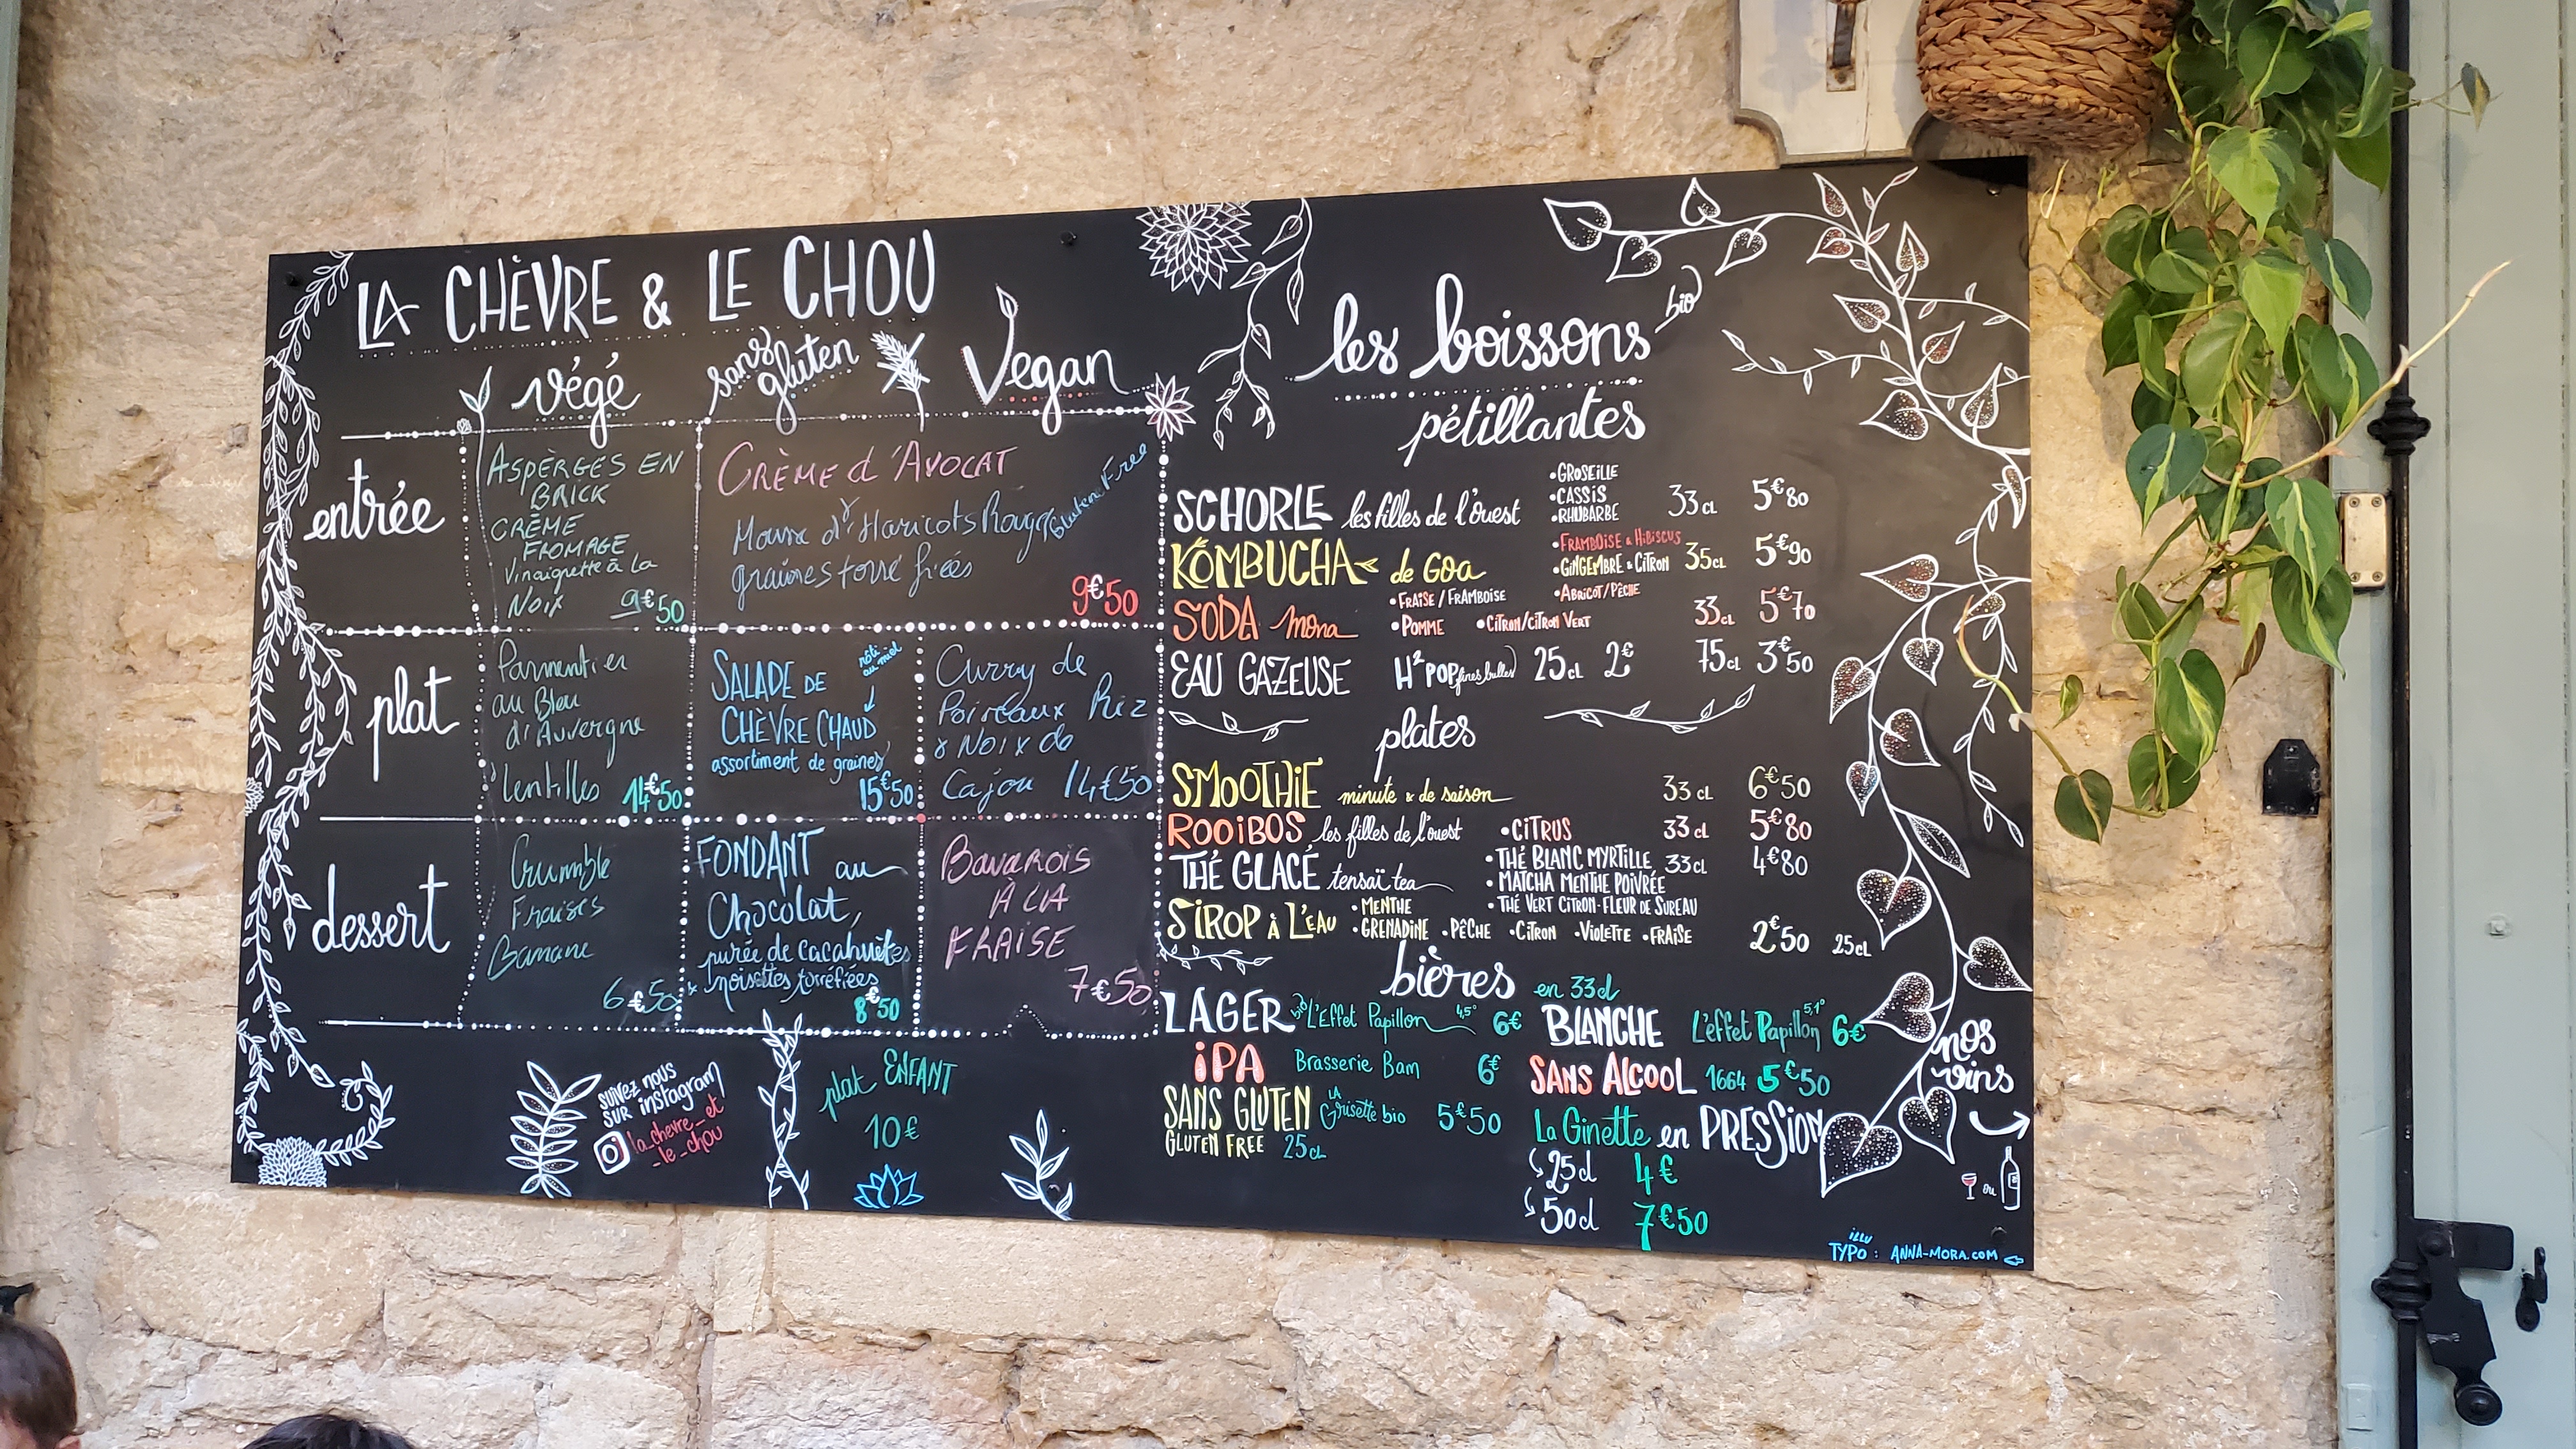 LA CHÈVRE & LE CHOU
végé
sans gluten
Vegan
entrée
ASPÈRGES EN
BRICK
CRÈME
FROMAGE
Vinaigrette à la
NOIX
9€50
CRÈME d'AVOCAT
Gluten Free
graines torré fiées
9€50
plat
Parmentier
au Bleu
d'Auvergne
lentilles 14€50
SALADE DE
rôti au miel
CHÈVRE CHAUD
assortiment de graines
15€50
Curry de
Poireaux Riz
& Noix de
Cajou 14€50
dessert
Crumble
Fraises
Banane
6€50
FONDANT au
Chocolat,
purée de cacahuètes
& noisettes torréfiées
8€50
Bavarois
À LA
FRAISE
7€50
SUIVEZ NOUS
SUR instagram
la_chevre_et
_le_chou
plat ENFANT
10€
les boissons bio
pétillantes
SCHORLE les filles de l'ouest
•GROSEILLE
•CASSIS
•RHUBARBE
33 cL 5€80
KOMBUCHA de Goa
•FRAMBOISE & HIBISCUS
•GINGEMBRE & CITRON
•ABRICOT/PÊCHE
35cL 5€90
SODA mona
•FRAISE/FRAMBOISE
•POMME •CITRON/CITRON VERT
33cL 5€70
EAU GAZEUSE H²POP fines bulles 25cL 2€ 75cL 3€50
plates
SMOOTHIE minute & de saison 33 cL 6€50
ROOIBOS les filles de l'ouest •CITRUS 33 cL 5€80
THÉ GLACÉ tensaï tea
•THÉ BLANC MYRTILLE
•MATCHA MENTHE POIVRÉE
•THÉ VERT CITRON-FLEUR DE SUREAU
33cL 4€80
SIROP À L'EAU
•MENTHE
•GRENADINE •PÊCHE •CITRON •VIOLETTE •FRAISE
2€50 25cL
bières en 33cl
LAGER bio L'Effet Papillon 4,5° 6€
BLANCHE L'effet Papillon 5,1° 6€
IPA Brasserie Bam 6€
SANS ALCOOL 1664 5€50
SANS GLUTEN LA Grisette bio 5€50
GLUTEN FREE 25cL
La Ginette en PRESSION
25cl 4€
50cl 7€50
nos
vins
ou
illu
TYPO : ANNA-MORA.COM